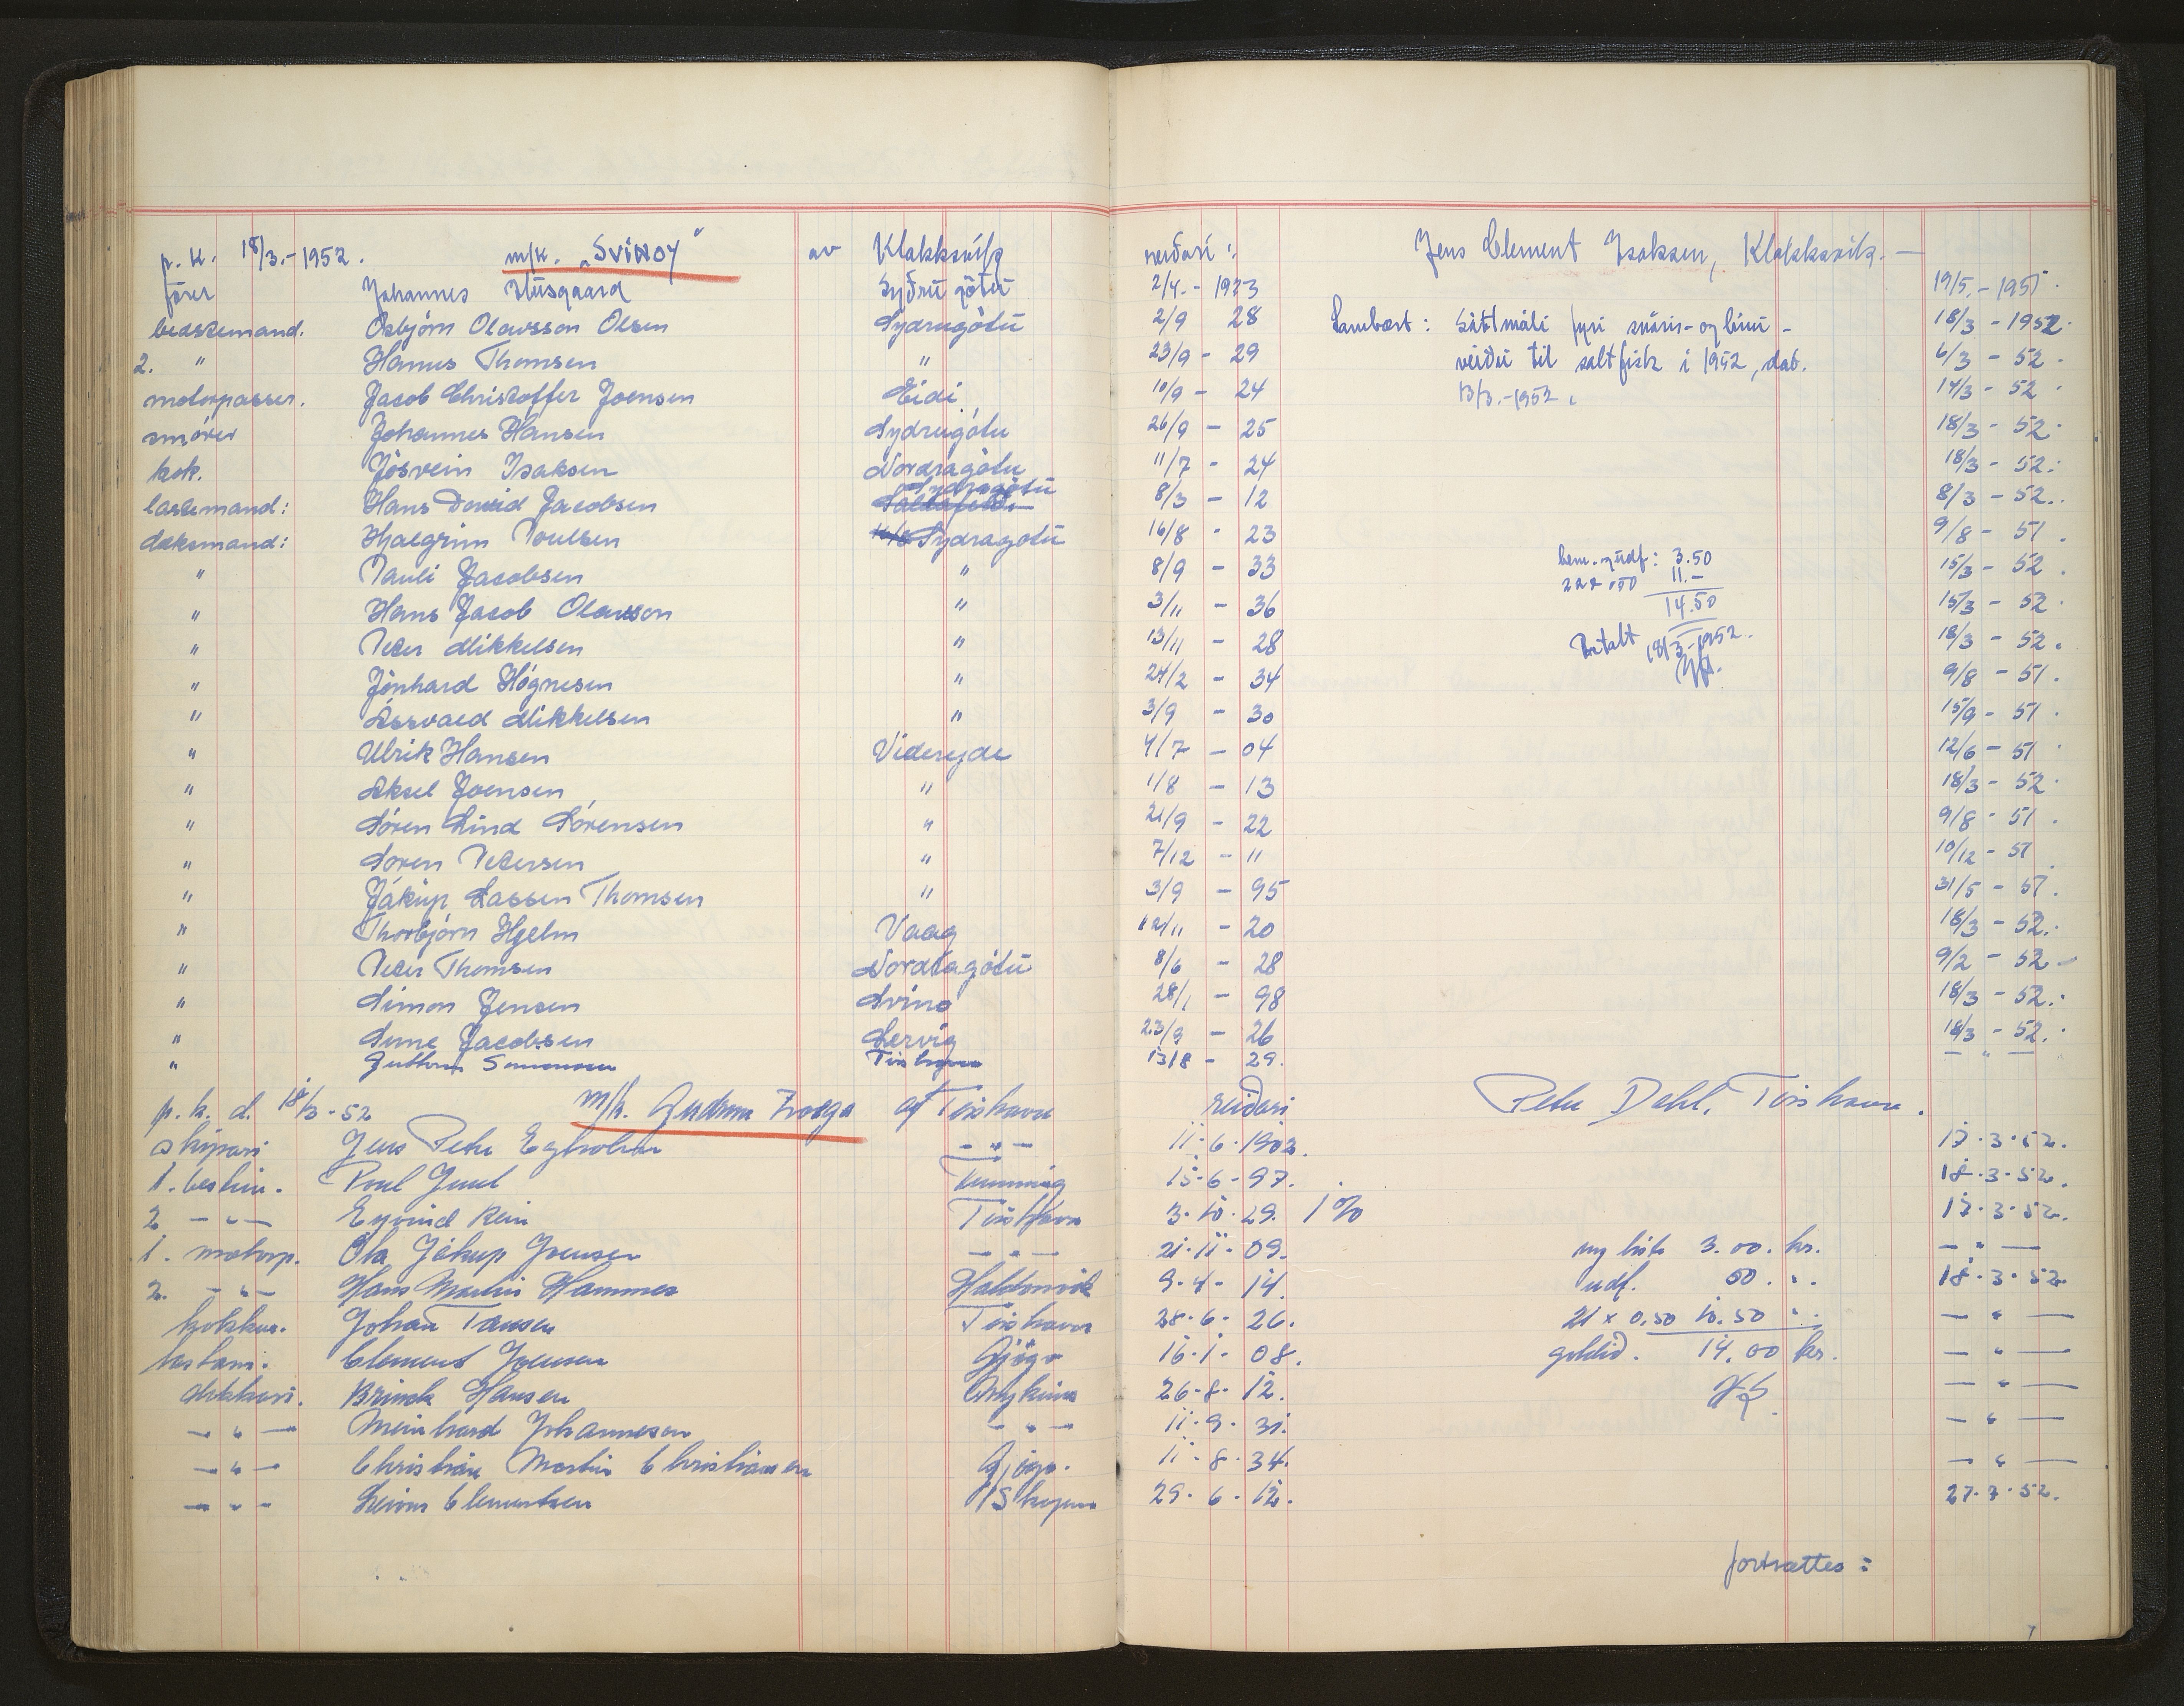 p. k. 18/3.-1952. m/k. „Svinoy" av Klakksvík reiðari: Jens Clement Isaksen, Klakksvík. —
förer Johannes Húsgaard Syðrugötu 2/4.- 1923 19/5.-1951.
bedstemand. Osbjørn Olavsson Olsen Sydrugötu 2/9 28 Sambært: sáttmáli fyri snöris- og línu- 18/3 - 1952.
2. " Hanus Thomsen " 23/9 - 29 veiðu til saltfisk i 1952, dat. 6/3 - 52.
motorpasser. Jacob Christoffer Joensen Eidi 10/9 - 24 13/3.-1952. 14/3 - 52.
smörer Johannes Hansen Sydrugötu 26/9 - 25 18/3 - 52.
kok. Jósvein Isaksen Nordragötu 11/7 - 24 18/3 - 52.
lastemand: Hans David Jacobsen Sydragötu 8/3 - 12 8/3 - 52.
dæksmand: Hjalgrim Poulsen Sydragötu 16/8 - 23 9/8 - 51.
" Pauli Jacobsen " 8/9 - 33 hem. og udf: 3.50 15/3 - 52.
" Hans Jacob Olavsson " 3/11 - 36 22 x 050 11.- 15/3 - 52.
14.50
" Peter Mikkelsen " 13/11 - 28 Betalt 18/3-1952. 18/3 - 52.
" Jónhard Högnesen " 24/2 - 34 9/8 - 51.
" Ássvald Mikkelsen " 3/9 - 30 15/9 - 51.
" Ulrik Hansen Viderejde 4/7 - 04 12/6 - 51
" Aksel Joensen " 1/8 - 13 18/3 - 52.
" Sören Lind Sörensen " 21/9 - 22 9/8 - 51.
" Sören Petersen " 7/12 - 11 10/12 - 51
" Jákup Lassen Thomsen " 3/9 - 95 31/5 - 51.
" Thorbjörn Hjelm Vaag 12/11 - 20 18/3 - 52.
" Peter Thomsen Nordragötu 8/6 - 28 9/2 - 52 -
" Simon Jensen Svinö 28/1 - 98 18/3 - 52.
" Sune Jacobsen Lervig 23/9 - 26 18/3 - 52.
" Guttorm Simonsen 13/8 - 29. — " —
p. k. d. 18/3 - 52 m/k. Gudrun Zoega af Tórshavn reiðari Peter Dahl, Tórshavn.
skipari Jens Peter Egholm — " — 11-6-1902. 17.3.52.
1. bestim. Poul Juul 15-6-97. 18.3.52.
2 — " — Eyvind Rein Tórshavn 3.10.29. 1% 17.3.52.
1. motorp. Óla Jákup Joensen — " — 21-11-09. ny liste 3.00. kr. — " —
2. — " — Hans Martin Hammer Haldorsvík 9-4-14. udf. 50. " 18.3.52.
kokkur. Johan Tausen Tórshavn 28-6-26. 21 x 0.50 10.50 " — " —
lastari. Clement Joensen Gjógv 16-1-08. goldið. 14.00 kr. — " —
dekkari. Brinck Hansen Mykines 26-8-12. — " —
— " — Meinhard Johannesen — " — 11-9-31. — " —
— " — Christian Martin Christiansen Gjógv. 11-8-34. — " —
— " — Clementsen 29-6-12. 27.3.52.
fortsættes: